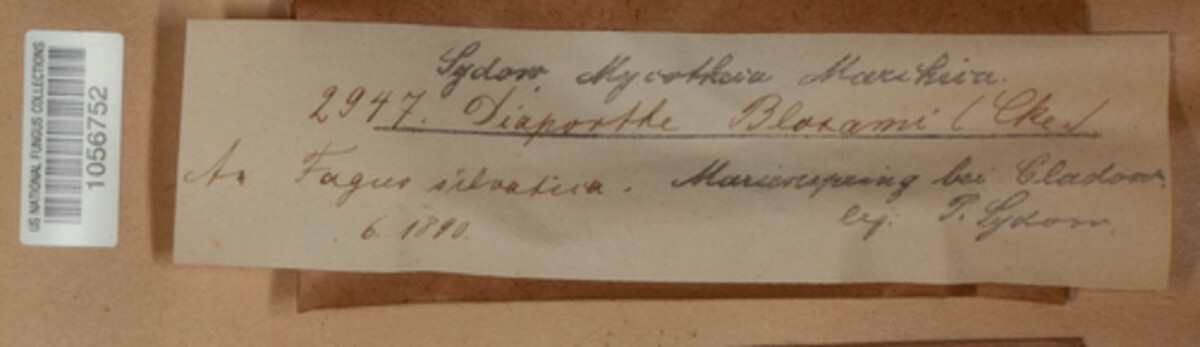 US NATIONAL FUNGUS COLLECTIONS
1056752
Sydow, Mycotheca Marchica.
2947. Diaporthe Bloxami (Cke.)
An Fagus silvatica. bei Cladow.
6. 1890. leg. P. Sydow.